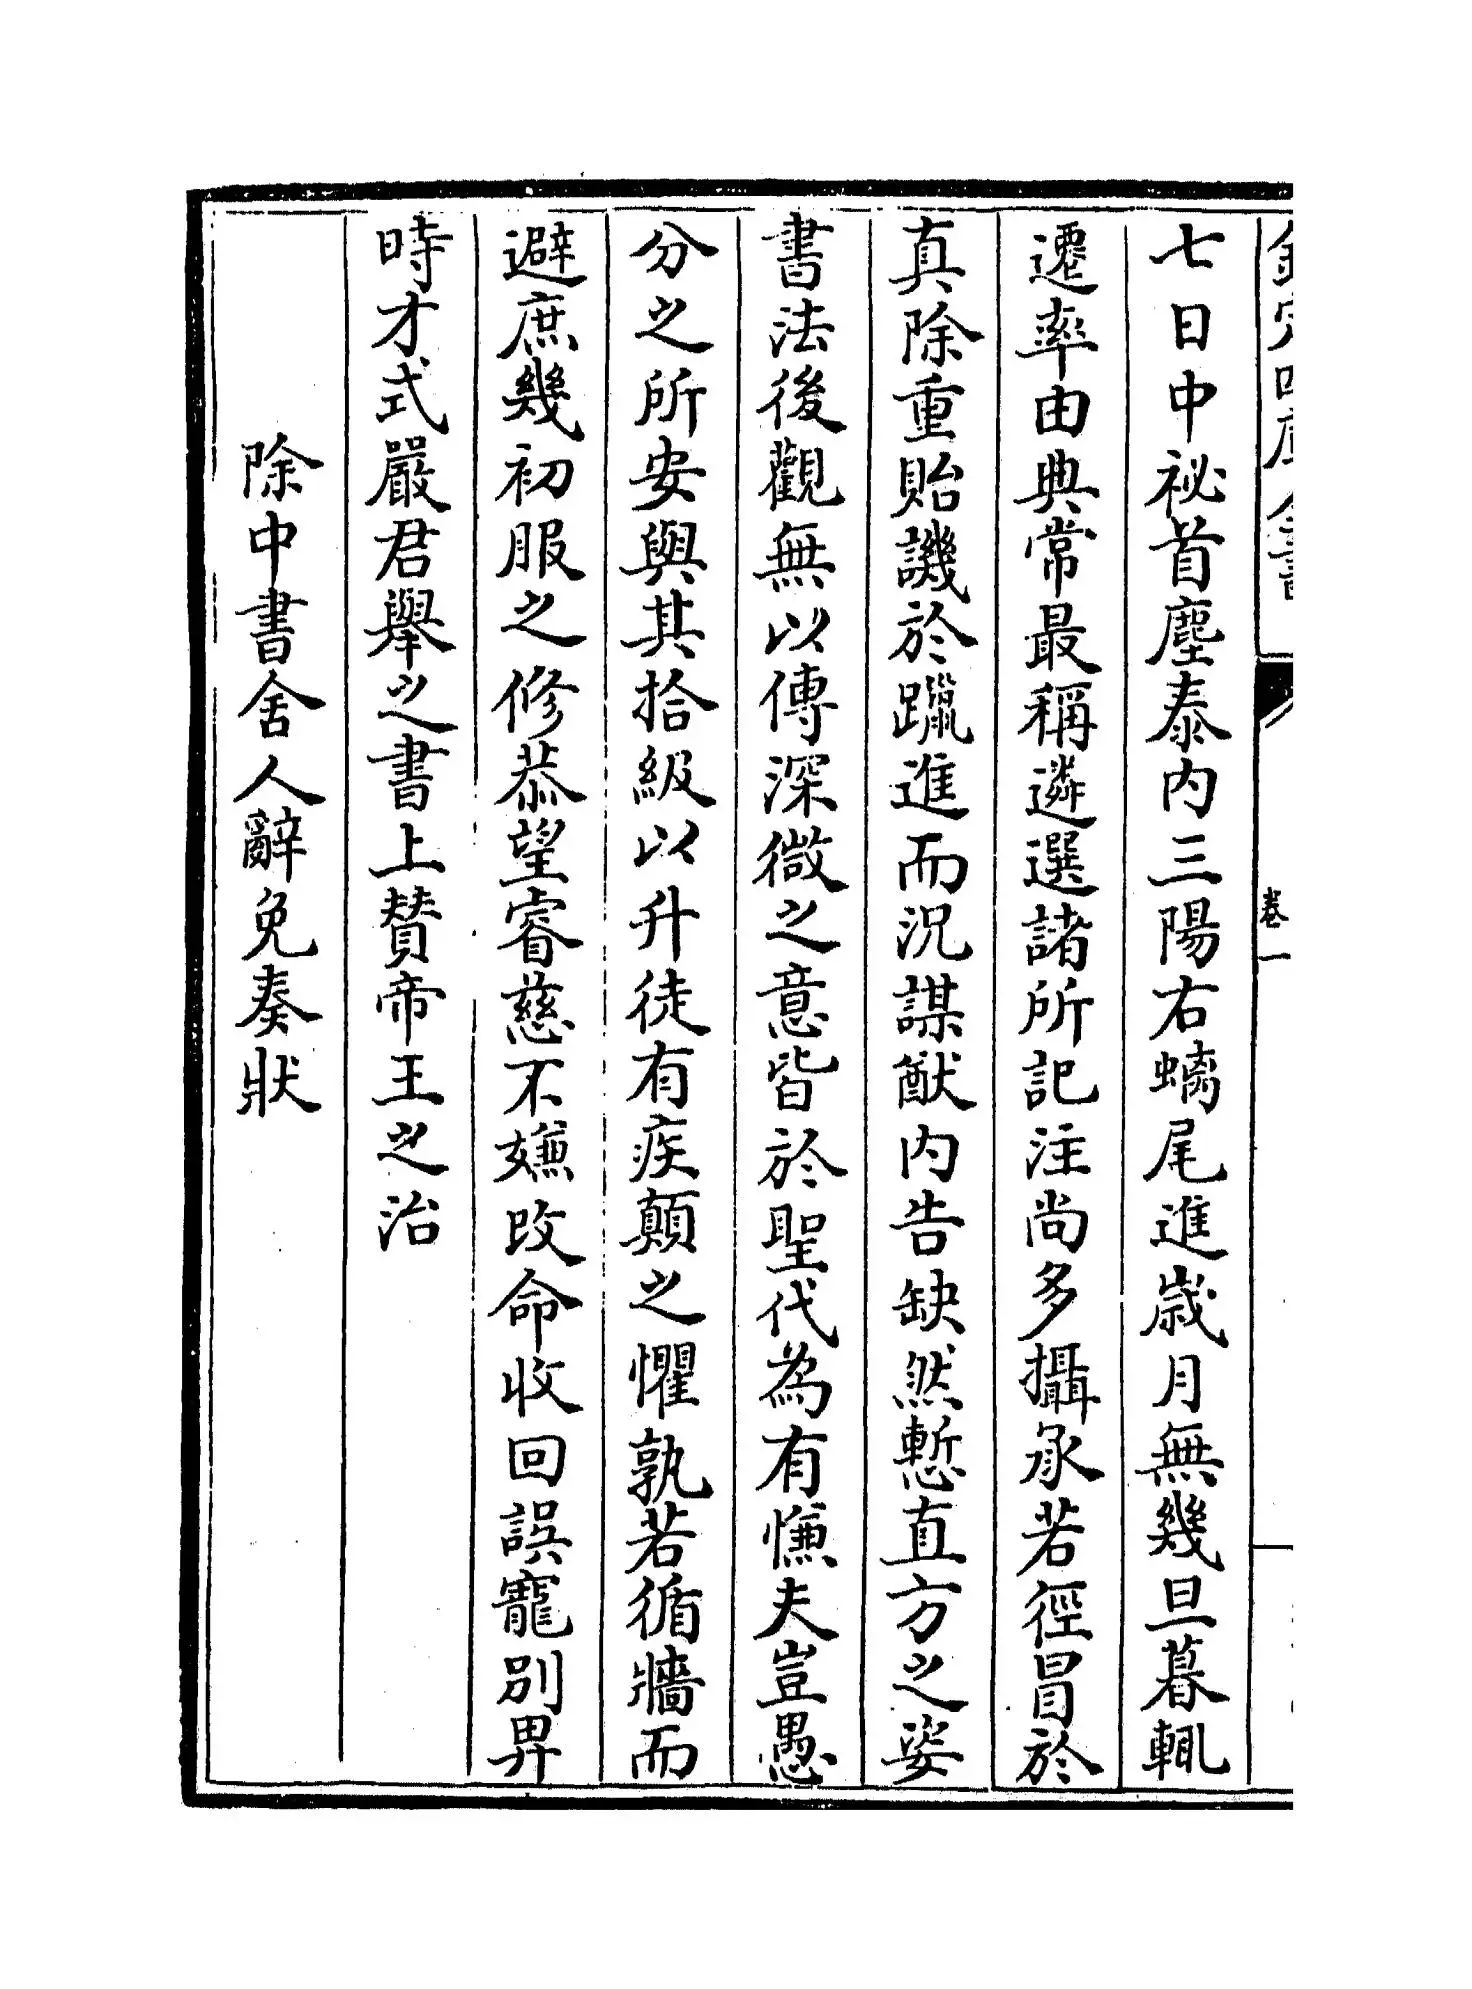 欽定四庫全書
卷一
七日中祕首塵泰內三陽右螭尾進歳月無幾旦暮輒
遷率由典常最稱遴選諸所記注尚多攝承若徑冒於
真除重貽譏於躐進而況謀猷内告缺然慙直方之姿
書法後觀無以傳深微之意皆於聖代為有慊夫豈愚
分之所安與其拾級以升徒有疾顛之懼孰若循牆而
避庶幾初服之修恭望睿慈不嫌改命收回誤寵别畀
時才式嚴君舉之書上賛帝王之治
除中書舍人辭免奏狀